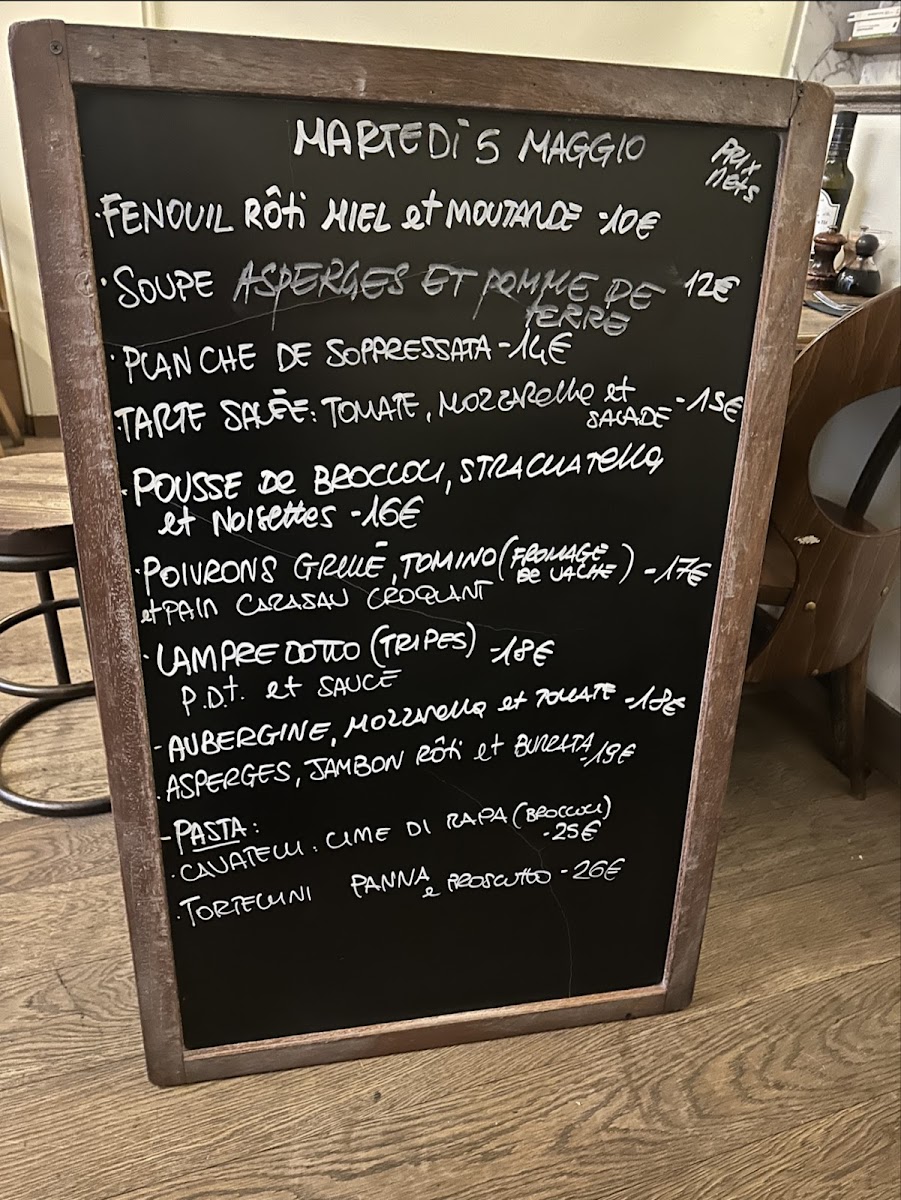 MARTEDÌ 5 MAGGIO
PRIX
NETS
·FENOUIL RÔti MIEL et MOUTARDE -10€
·SOUPE ASPERGES ET POMME DE 12€
TERRE
·PLANCHE DE SOPPRESSATA -14€
·TARTE SALÉE: TOMATE, MOZZARella et -15€
SALADE
·POUSSE De BROCCOLI, STRACCIATella
et Noisettes -16€
·POIVRONS GRILLÉ, TOMINO (FROMAGE -17€
DE VACHE)
et PAIN CARASAU CROQUANT
·LAMPREDOTTO (TRIPES) -18€
P.D.t. et SAUCE
-AUBERGINE, MOZZARella et TOMATE -18€
·ASPERGES, JAMBON RÔti et BURRATA -19€
-PASTA:
·CAVATELLI: CIME DI RAPA (BROCCOLI)
-25€
·TORTELLINI PANNA
e PROSCIUTTO -26€